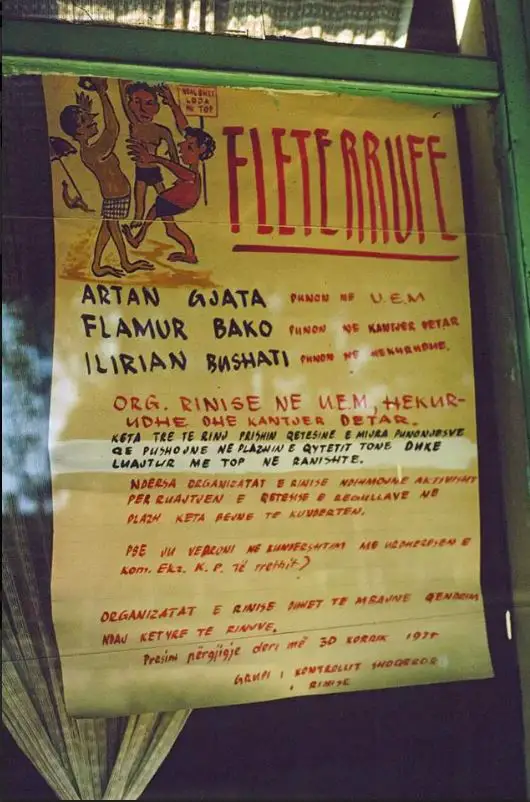 NDALOHET
LOJA
ME TOP
FLETERRUFE
ARTAN GJATA PUNON NE U.E.M
FLAMUR BAKO PUNON NE KANTJER DETAR
ILIRIAN BUSHATI PUNON NE HEKURUDHE.
ORG. RINISE NE U.E.M, HEKUR-
UDHE DHE KANTJER DETAR.
KETA TRE TE RINJ PRISHIN QETESINE E MIJRA PUNONJESVE
QE PUSHOJNE NE PLAZHIN E QYTETIT TONE DUKE
LUAJTUR ME TOP NE RANISHTE.
NDERSA ORGANIZATAT E RINISE NDIHMOJNE AKTIVISHT
PER RUAJTJEN E QETESISE E RREGULLAVE NE
PLAZH KETA BEJNE TE KUNDERTEN.
PSE JU VEPRONI NE KUNDERSHTIM ME URDHERESEN E
Kom. Ekz. K.P. Të rrethit?
ORGANIZATAT E RINISE DUHET TE MBAJNE QENDRIM
NDAJ KETYRE TE RINJVE.
Presim përgjigje deri më 30 KORRIK
GRUPI I KONTROLLIT SHOQEROR
I RINISE